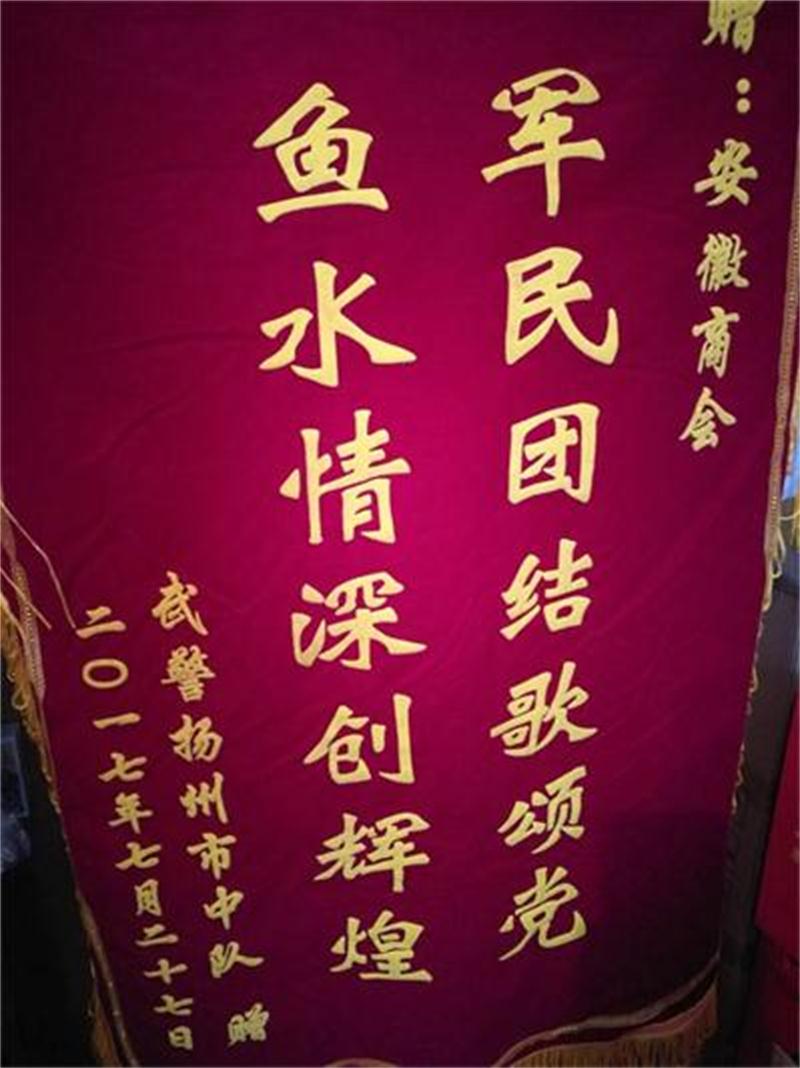 赠：安徽商会
军民团结歌颂党
鱼水情深创辉煌
武警扬州市中队 赠
二〇一七年七月二十七日